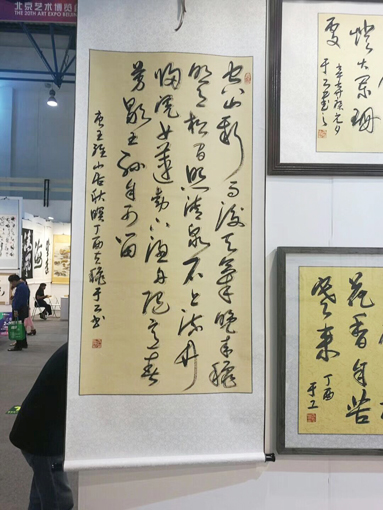 北京艺术博览
THE 20TH ART EXPO BEIJING
空山新雨後天氣晚來穐
明月松间照清泉石上流竹
喧归浣女莲动下渔舟随意春
芳歇王孙自可留
唐王維山居秋暝丁酉之穐于工书
燈火阑珊
处
花香自苦
寒来
丁酉
于工